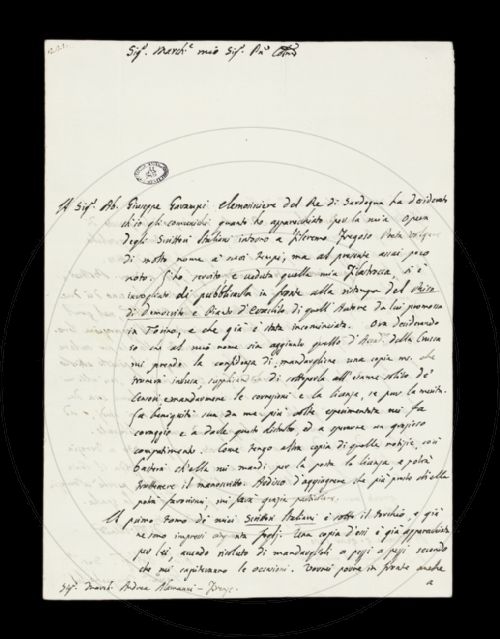 Sig.r March.e mio Sig.r P.ne Colmo
Il Sig.r Ab. Giuseppe Elemosiniere del Re di Sardegna ha desiderato
ch'io gli comunichi quanto ho apparecchiato per la mia Opera
degli Scrittori Italiani intorno a Fileremo Fregoso Poeta volgare
di molto nome a' suoi tempi, ma al presente assai poco
noto. L'ho servito e veduta quella mia si è
invogliato di pubblicarla in fronte alla ristampa del Riso
di Democrito e Pianto d'Eraclito di quell'Autore da lui promossa
in Torino, e che già è stata incominciata. Ora desiderando
io che al mio nome sia aggiunto quello d'Accad. della Crusca
mi prendo la confidenza di mandargliene una copia ms. che
troverà inclusa, supplicandola di sottoporla all'esame solito de'
Censori e mandarmene le correzioni e la licenza, se pur la merita.
La benignità sua da me più volte esperimentata mi fa
coraggio a darle questo disturbo, ed a sperarne un grazioso
compatimento. Come tengo altra copia di quelle notizie, così
basterà ch'ella mi mandi per la posta la licenza, e potrà
trattenere il manoscritto. Ardisco d'aggiugnere che più presto ch'ella
potrà favorirmi, mi sarà grazia particolare.
Il primo Tomo de' miei Scrittori Italiani è sotto il torchio, e già
ne sono impressi fogli. Una copia d'essi è già apparecchiata
per lei, avendo risoluto di mandarglieli a pezzi a pezzi, secondo
che mi capiteranno le occasioni. Vorrei porre in fronte anche
a
Sig.r March. Andrea Alamanni - Firenze